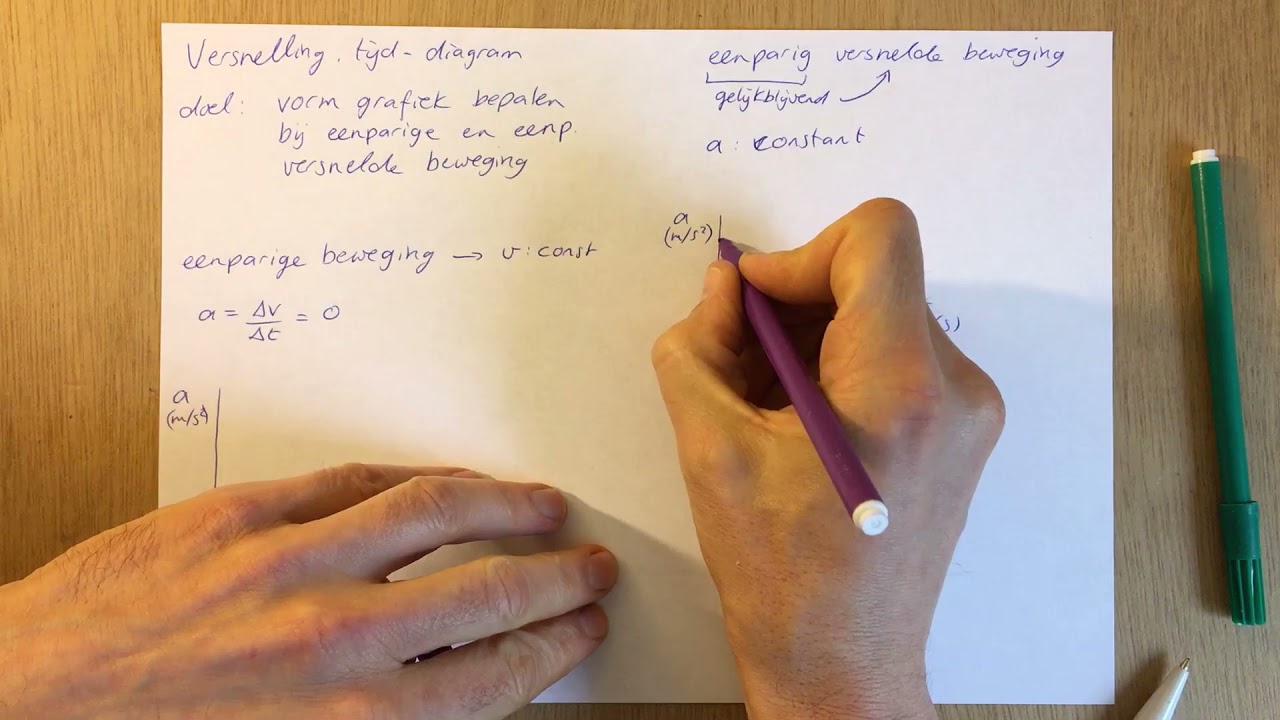 Versnelling, tijd-diagram
doel: vorm grafiek bepalen
bij eenparige en eenp.
versnelde beweging
eenparige beweging → v: const
a = Δv/Δt = 0
a
(m/s²)
eenparig versnelde beweging
gelijkblijvend
a: constant
a
(m/s²)